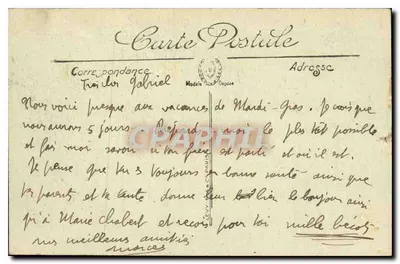 Carte Postale
Correspondance
Adresse
Modèle Déposé
CPAPHIL
Très cher Gabriel
Nous voici presque aux vacances de Mardi-Gras. Je crois que
nous aurons 5 jours. Réponds moi le plus tôt possible
et fais moi savoir si ton frère est parti et où il est.
Je pense que tu es toujours en bonne santé ainsi que
tes parents et ta tante donne leur bien le bonjour ainsi
qu'à Marie Chabert et reçois pour toi mille bécots
mes meilleurs amitiés